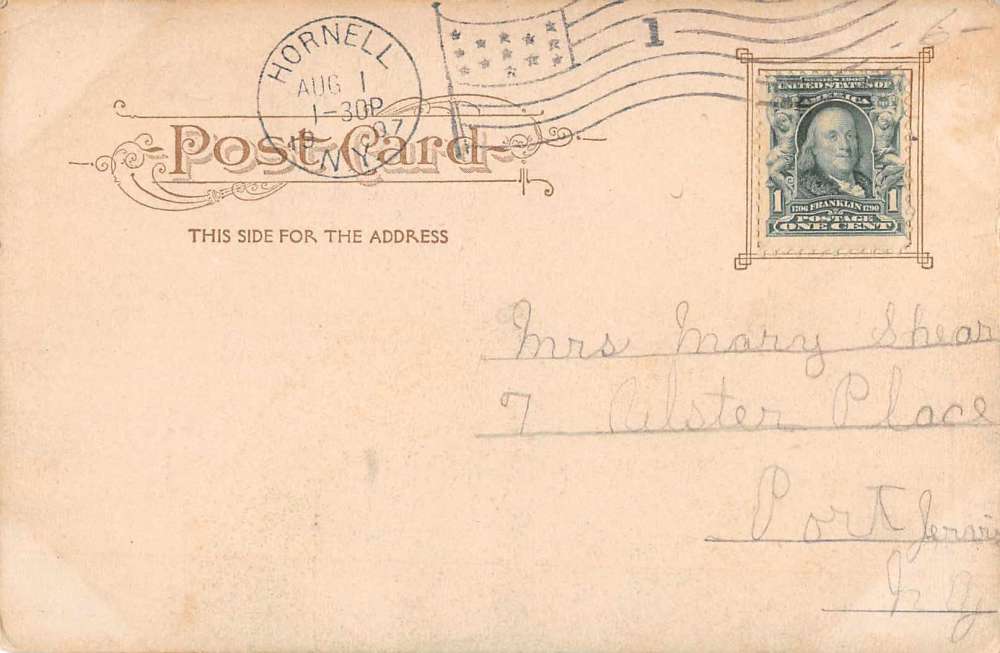 HORNELL
AUG 1
1-30P
1907
N.Y.
1
-6-
Post Card
THIS SIDE FOR THE ADDRESS
SERIES 1902
UNITED STATES OF
AMERICA
1 1706 FRANKLIN 1790 1
POSTAGE
ONE CENT
Mrs Mary Shear
7 Ulster Place
Port Jervis
N Y